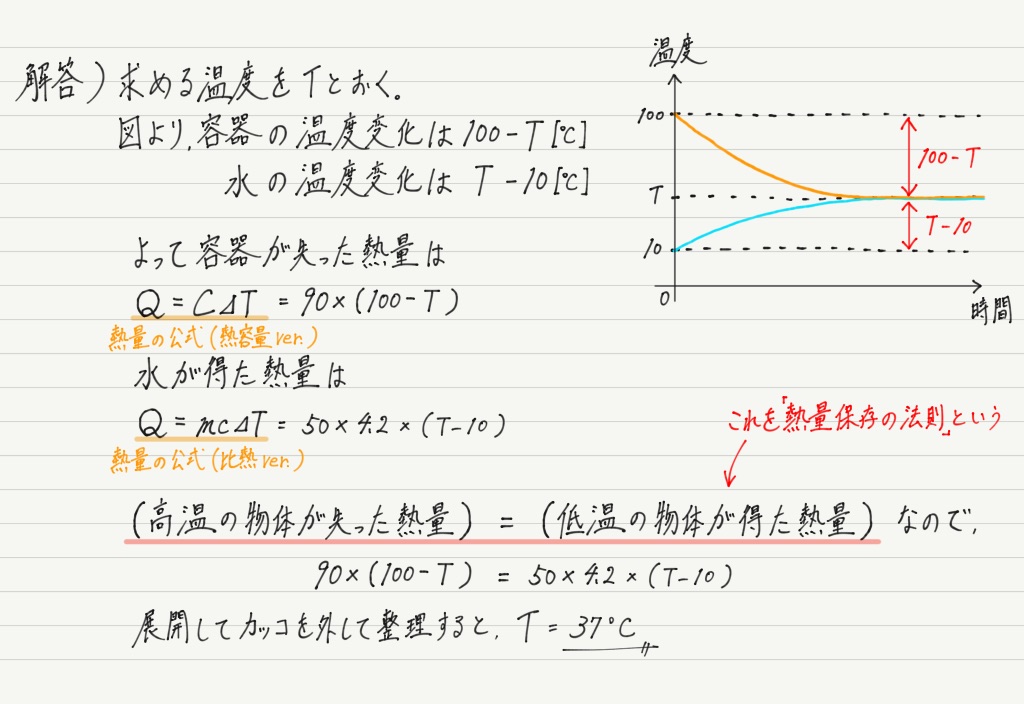 解答)求める温度をTとおく。
図より,容器の温度変化は100-T[℃]
水の温度変化は T-10[℃]
よって容器が失った熱量は
Q=CΔT = 90×(100-T)
熱量の公式(熱容量ver.)
水が得た熱量は
Q=mcΔT = 50×4.2×(T-10)
熱量の公式(比熱ver.)
温度
100
T
10
0
時間
100-T
T-10
これを「熱量保存の法則」という
(高温の物体が失った熱量) = (低温の物体が得た熱量) なので,
90×(100-T) = 50×4.2×(T-10)
展開してカッコを外して整理すると, T=37℃